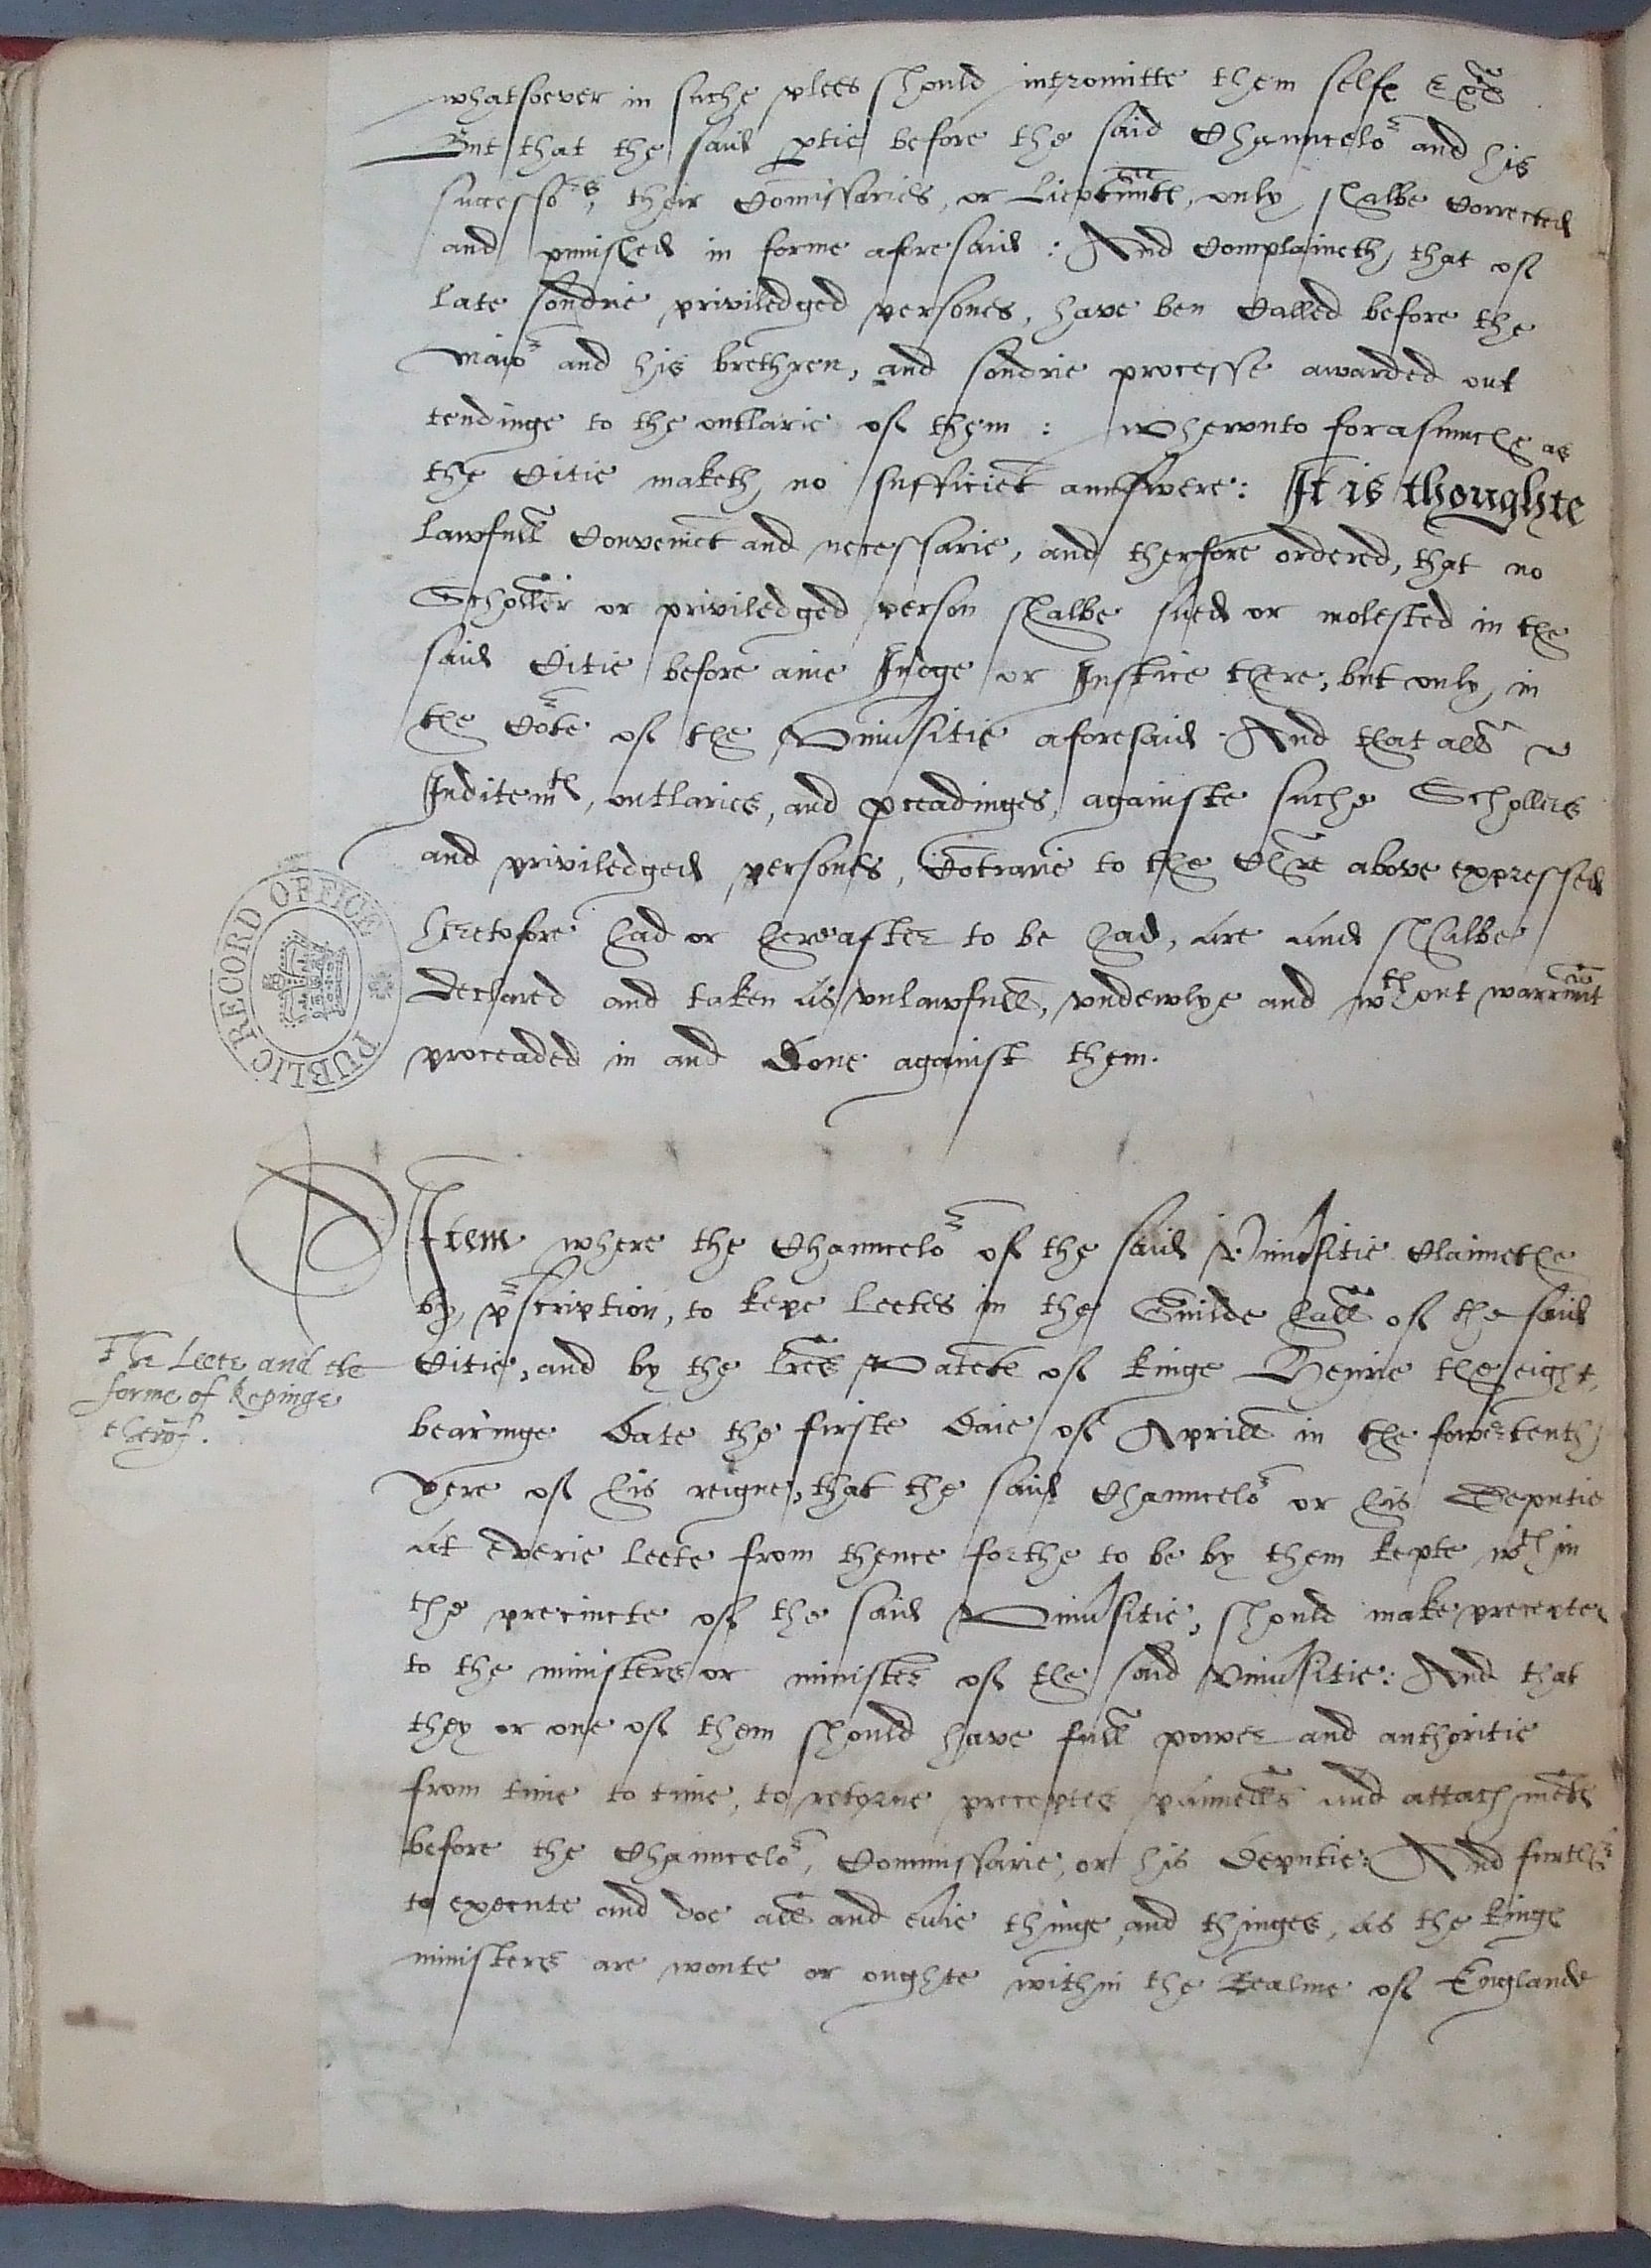 whatsoever in suche plees should intromitte them selfe
But that the said ptie before the said Chauncelor and his
successors, their Comissaries, or Lieutennte, only shalbe Corrected
and punished in forme aforesaid : And Complaineth, that of
late sondrie priviledged persones, have ben Called before the
Maior and his brethren, and sondrie processe awarded out
tendinge to the outlarie of them : Wherunto forasmuche as
the Citie maketh no sufficiet aunswere: It is thoughte
lawfull Convenict and necessarie, and therfore ordered, that no
Scholler or priviledged person shalbe sued or molested in the
said Citie before anie Judge or Justice there, but only in
the Corte of the Univsitie aforesaid. And that all
Inditemtes, outlaries, and pceadinges, againste suche Schollers
and priviledged persones, Cotrarie to the Chre above expressed
heretofore had or hereafter to be had, are and shalbe
Declared and taken as unlawfull, undewlye and wthout warraunt
proceaded in and Done against them.
Item where the Chauncelor of the said Univsitie Claimethe
by pscription, to kepe Leetes in the Guilde hall of the said
Citie, and by the lres Patete of kinge Henrie the eight,
bearinge Date the firste Daie of Aprill in the fowertenth
yere of his reigne, that the said Chauncelor or his Deputie
At Everie leete from thence forthe to be by them kepte wthin
the precincte of the said Univsitie, should make preceptes
to the ministers or minister of the said Univsitie: And that
they or one of them should have full power and authoritie
from time to time, to retorne preceptes pannells and attachmetes
before the Chauncelor, Commissarie, or his Deputie: And further
to execute and doe all and evie thinge and thinges, as the kinges
ministers are wonte or oughte within the Realme of Englande
The Leete and the
forme of kepinge
therof.
PUBLIC RECORD OFFICE